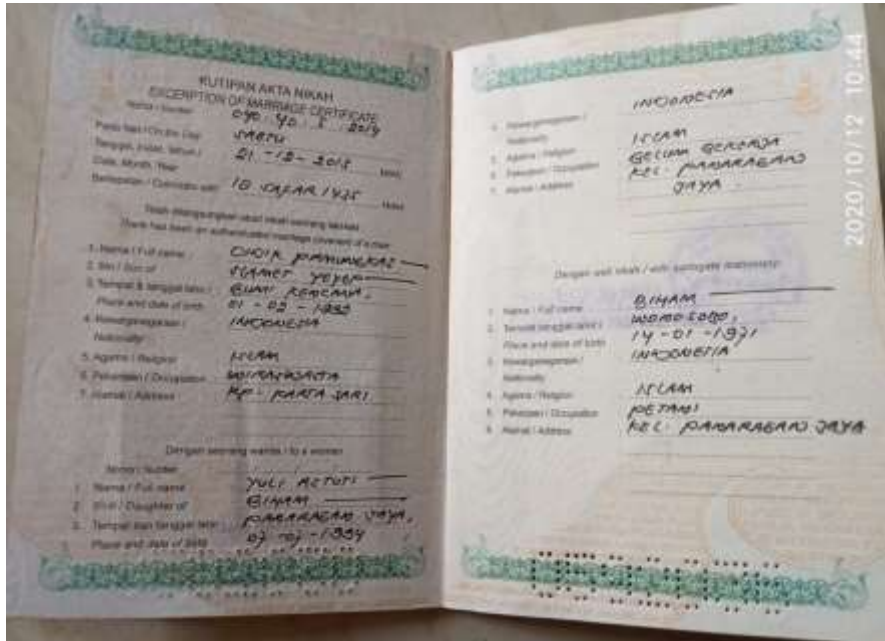 KUTIPAN AKTA NIKAH
EXCERPTION OF MARRIAGE CERTIFICATE
Nomor / Number
Pada hari / On the Day SABTU
Tanggal, bulan, tahun / 21 - 12 - 2013
Date, Month, Year
Bertepatan / Coincides with 18 SAFAR 1435
Telah dilangsungkan akad nikah seorang laki-laki
There has been an authenticated marriage covenant of a man
1. Nama / Full name
2. Bin / Son of SLAMET
3. Tempat & tanggal lahir / BUMI KENCANA,
Place and date of birth
4. Kewarganegaraan / INDONESIA
Nationality
5. Agama / Religion ISLAM
6. Pekerjaan / Occupation WIRASWASTA
7. Alamat / Address KP. KARTA SARI
Dengan seorang wanita / to a woman
Nomor / Number
1. Nama / Full name YULI ASTUTI
2. Binti / Daughter of BIHAM
3. Tempat dan tanggal lahir / PANARAGAN JAYA,
Place and date of birth 07 - 07 - 1994
4. Kewarganegaraan / INDONESIA
Nationality
5. Agama / Religion ISLAM
6. Pekerjaan / Occupation BELUM BEKERJA
7. Alamat / Address KEL. PANARAGAN
JAYA
Dengan wali nikah / with surrogate
1. Nama / Full name BIHAM
2. Tempat tanggal lahir / WONOSOBO,
Place and date of birth 14 - 01 - 1971
3. Kewarganegaraan / INDONESIA
Nationality
4. Agama / Religion ISLAM
5. Pekerjaan / Occupation PETANI
6. Alamat / Address KEL. PANARAGAN JAYA
2020/10/12 10:44